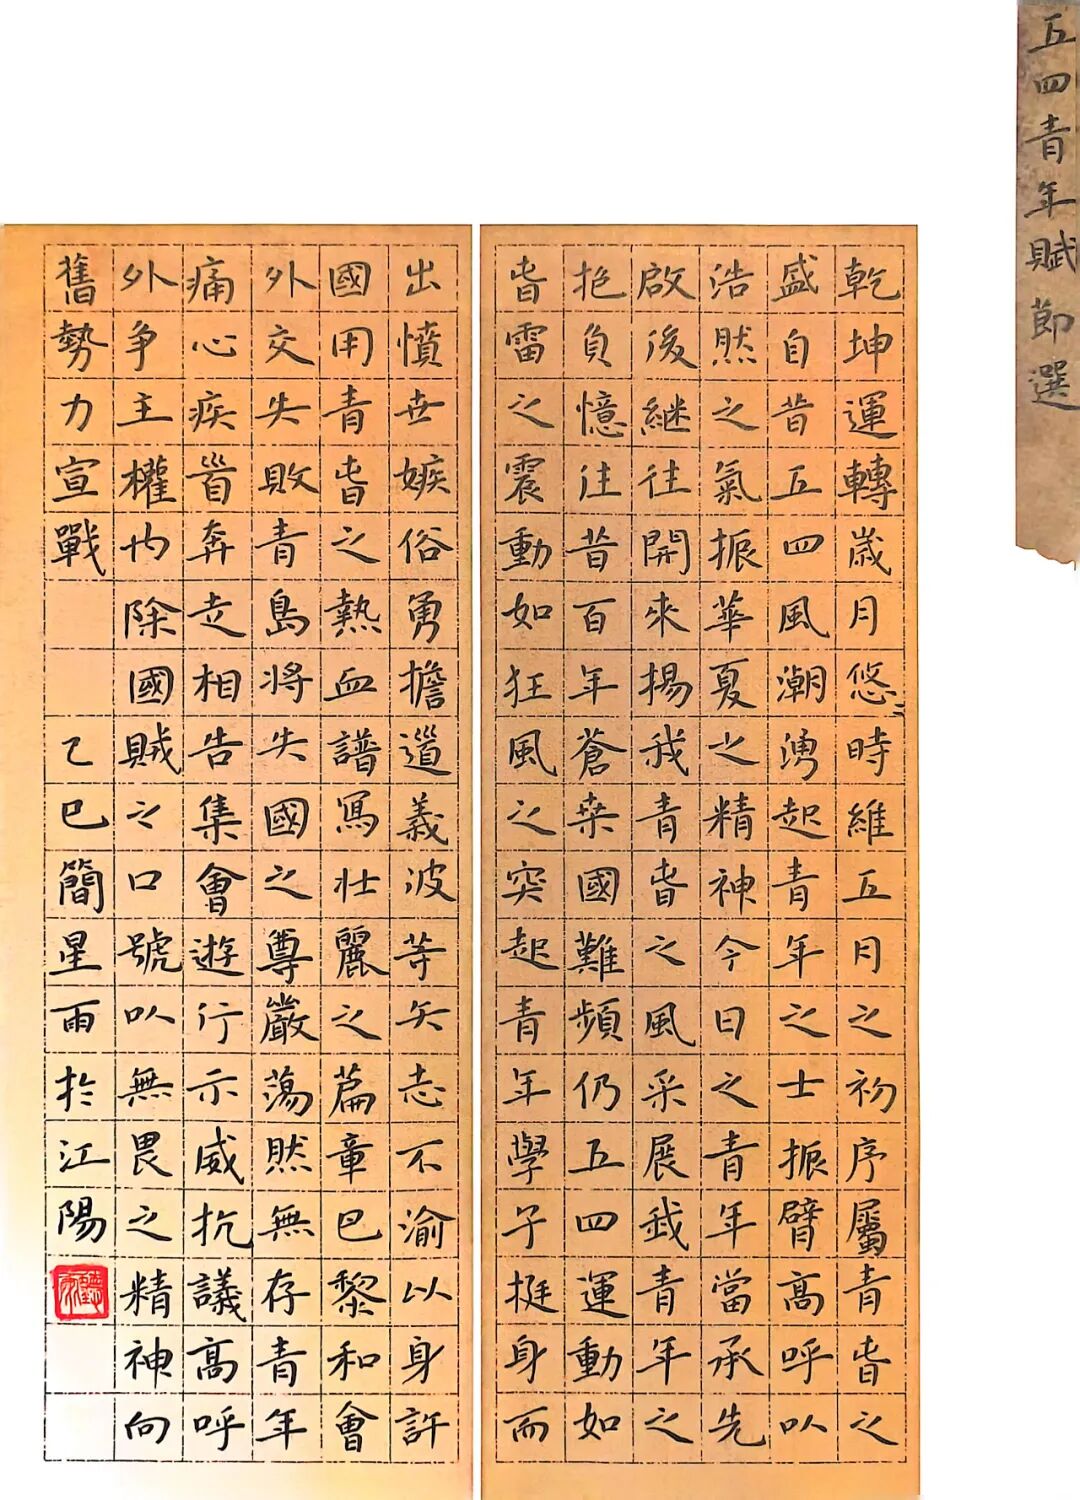 五四青年賦節選
乾坤運轉歲月悠々時維五月之初序屬青春之
盛自昔五四風潮湧起青年之士振臂高呼以
浩然之氣振華夏之精神今日之青年當承先
啟後繼往開來揚我青春之風采展我青年之
抱負憶往昔百年蒼桑國難頻仍五四運動如
春雷之震動如狂風之突起青年學子挺身而
出憤世嫉俗勇擔道義波等矢志不渝以身許
國用青春之熱血譜寫壯麗之篇章巴黎和會
外交失敗青島將失國之尊嚴蕩然無存青年
痛心疾首奔走相告集會遊行示威抗議高呼
外争主權內除國賊之口號以無畏之精神向
舊勢力宣戰
乙巳簡星雨於江陽